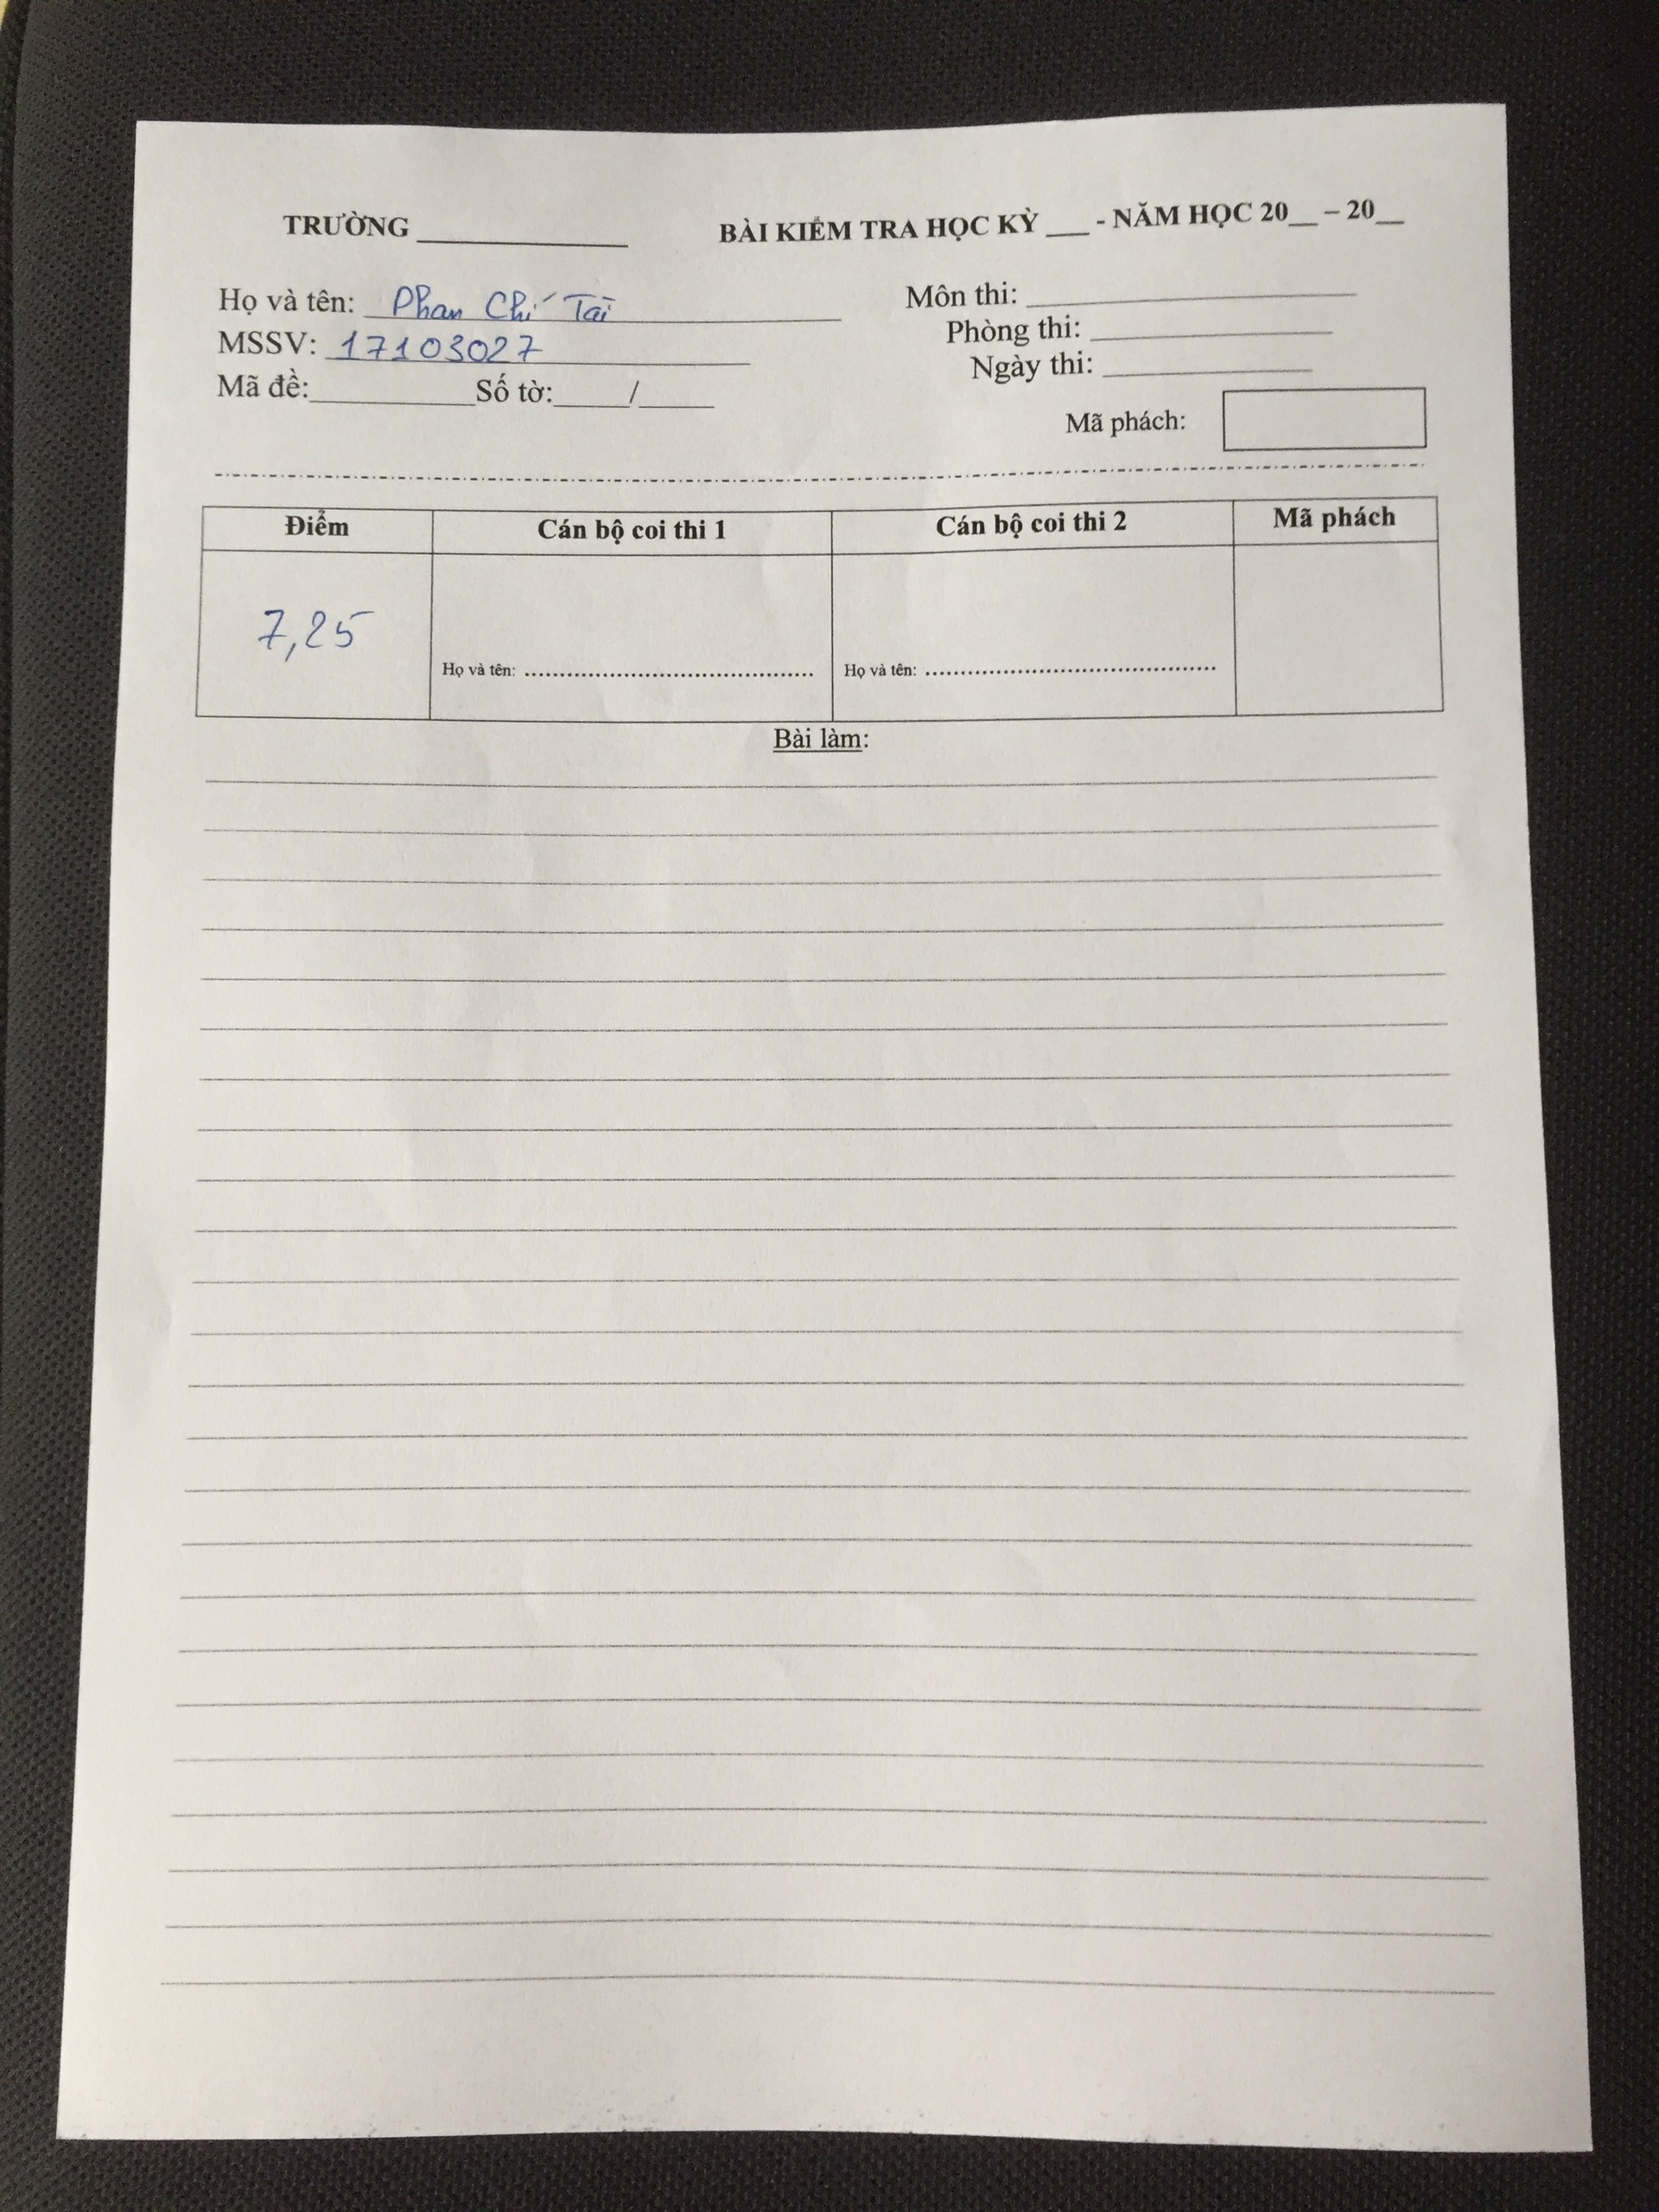 TRƯỜNG _______________ BÀI KIỂM TRA HỌC KỲ ___ - NĂM HỌC 20__ – 20__
Họ và tên: Phan Chí Tài Môn thi: _______________
MSSV: 17103027 Phòng thi: _______________
Mã đề:__________ Số tờ:_____/_____ Ngày thi: _______________
Mã phách:
Điểm Cán bộ coi thi 1 Cán bộ coi thi 2 Mã phách
7,25
Họ và tên: ........................................ Họ và tên: ........................................
Bài làm: